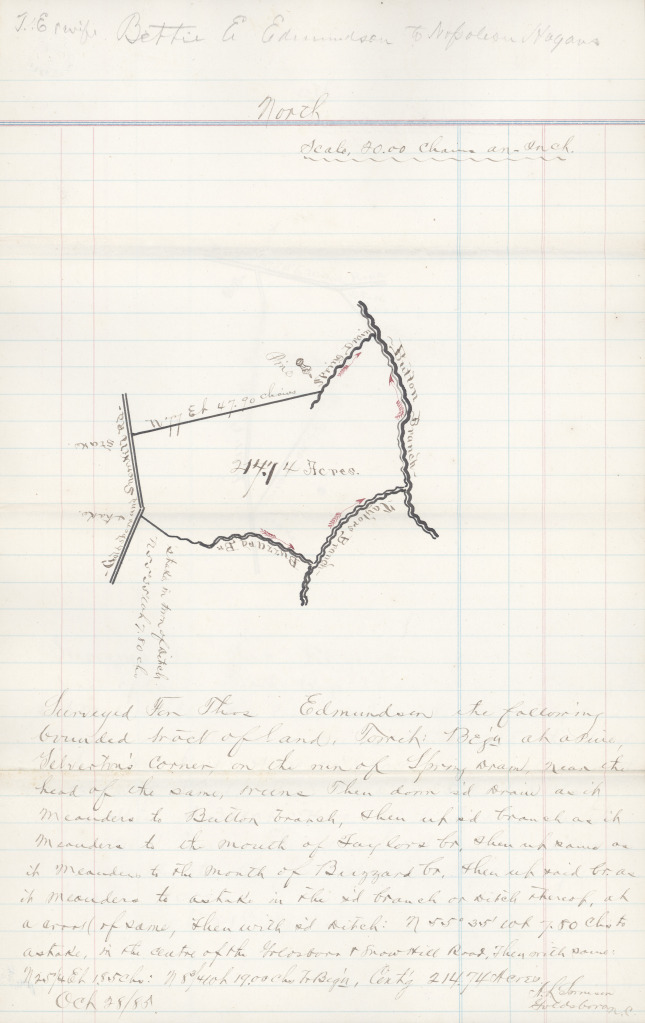 T. E & wife Bettie E Edmundson to Napoleon Hagans
North
Scale, 20.00 Chains an-Inch.
Pine
Spring Drain
Button Branch
W 3 47.90 chains
Stake
214.74 Acres.
Stake
Taylors Branch
Buzzard Br
Stake in run of Ditch
N 55° 35' W 7.80 ch
Surveyed For Thos Edmundson the following
bounded tract of land, Towit: Beg'n at a Pine,
Yelverton's corner, on the run of Spring Drain, near the
head of the same, runs Then down s'd Drain as it
meanders to Button branch, then up s'd branch as it
meanders to the mouth of Taylors br, then up same as
it meanders to the mouth of Buzzard br, then up said br as
it meanders to a stake in the s'd branch or ditch thereof, at
a crook of same, then with s'd ditch: N 55° 35' W 7.80 chs to
a stake, in the centre of the Goldsboro & Snow Hill Road, Then with same:
N 25¼ E 18.50 chs: N 8¼ W 19.00 chs to Beg'n, Cont'g 214.74 Acres
Oct 28/85
Goldsboro N.C.